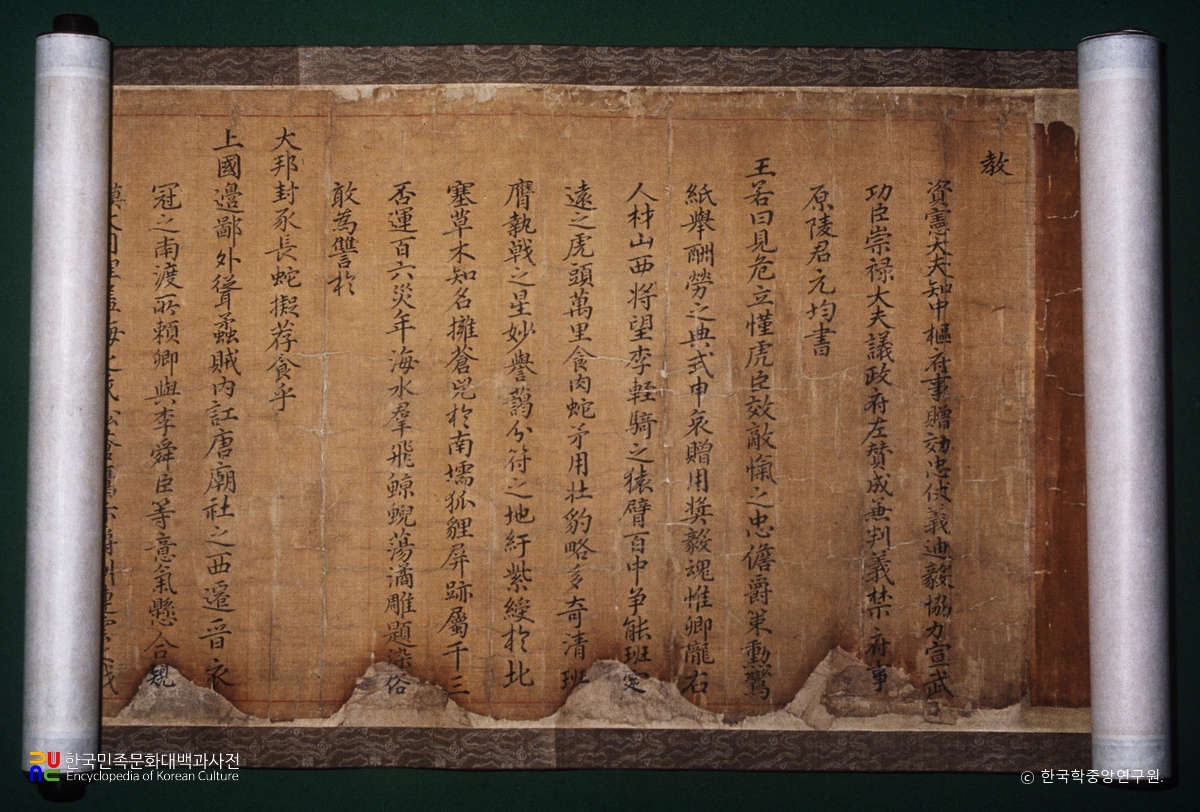 教
資憲大夫知中樞府事贈効忠仗義迪毅協力宣武
功臣崇禄大夫議政府左賛成兼判義禁府事
原陵君元均書
王若曰見危立慬虎臣效敵愾之忠儋爵策勲鸞
紙舉酬勞之典式申哀贈用奬毅魂惟卿隴右
人材山西將望李輕騎之猿臂百中争能班定
遠之虎頭萬里食肉蛇矛用壮豹略多奇清班
膺執戟之星妙譽藹分符之地紆紫綬於北
塞草木知名擁蒼兕於南壖狐貍屏跡屬千三
否運百六災年海水羣飛鯨鯢蕩潏雕題染俗
敢為讐於
大邦封豕長蛇擬荐食乎
上國邊鄙外聳蟊賊內訌唐廟社之西遷晋衣
冠之南渡所賴卿與李舜臣等意氣懸合親
한국민족문화대백과사전
Encyclopedia of Korean Culture
© 한국학중앙연구원.